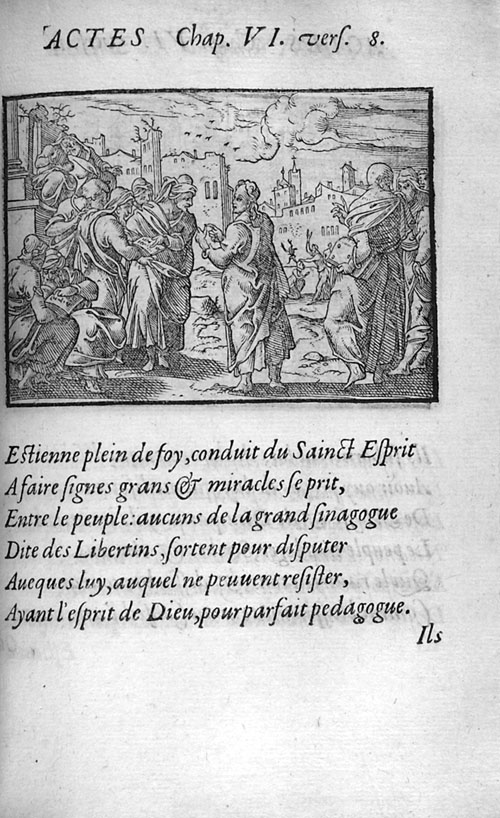 ACTES Chap. VI. vers. 8.
Estienne plein de foy, conduit du Sainct Esprit
A faire signes grans & miracles se prit,
Entre le peuple: aucuns de la grand sinagogue
Dite des Libertins, sortent pour disputer
Auecques luy, auquel ne peuuent resister,
Ayant l'esprit de Dieu, pour parfait pedagogue.
Ils